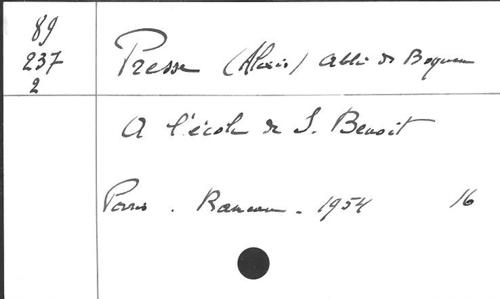 89
237
2
Presse (Alexis) Abbé de Boquen
A l'école de S. Benoit
Paris. 1954 16